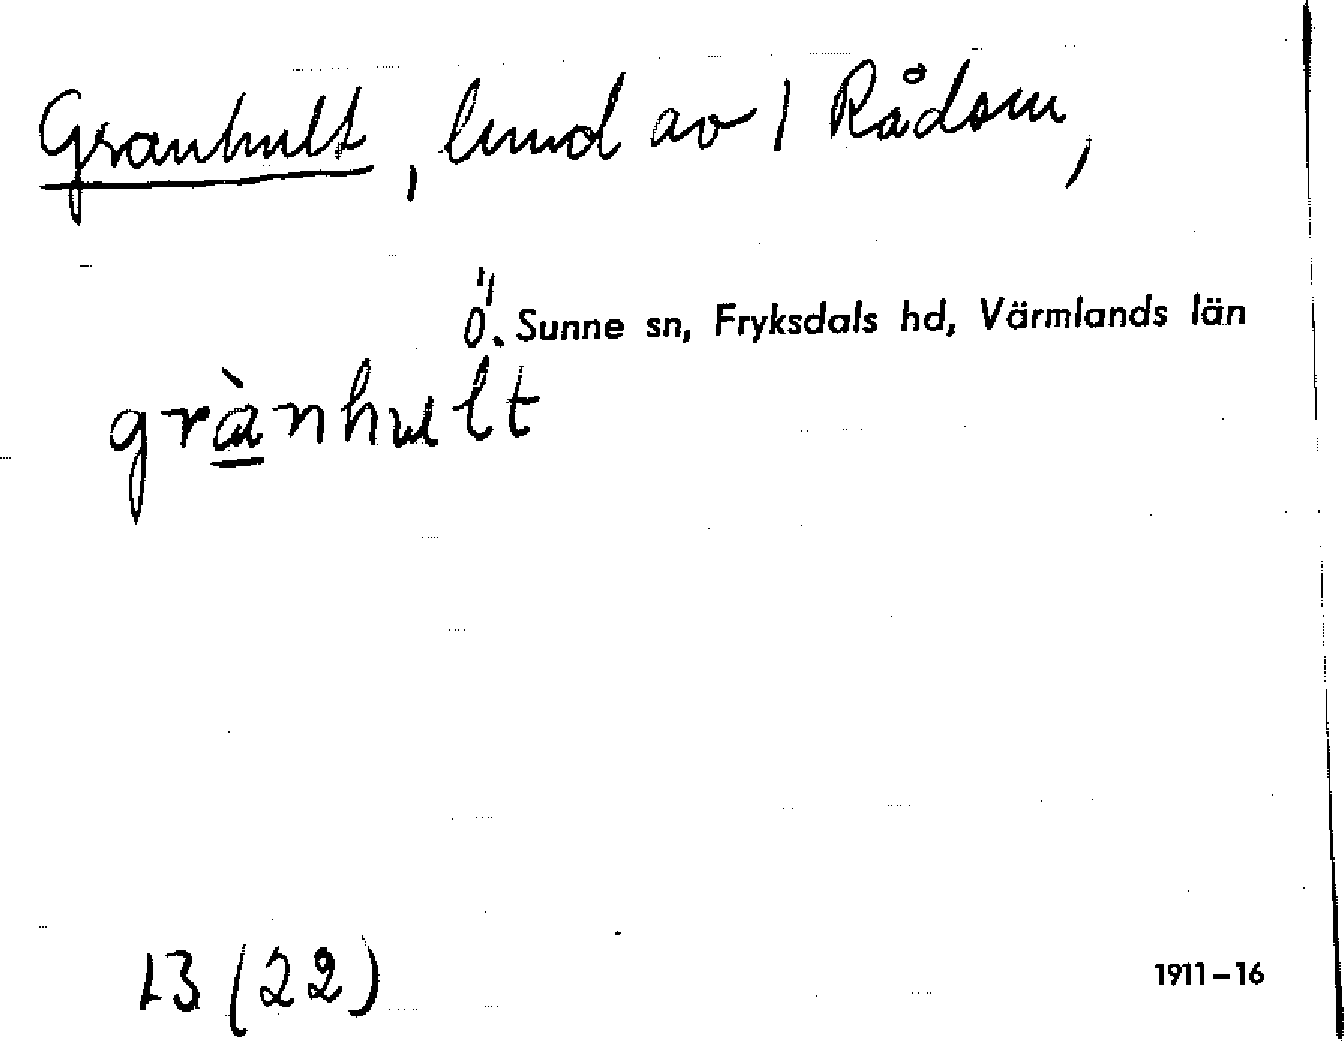 Granhult, lund av 1 Rådom,
Ö. Sunne sn, Fryksdals hd, Värmlands län
grànhult
13 (22)
1911–16